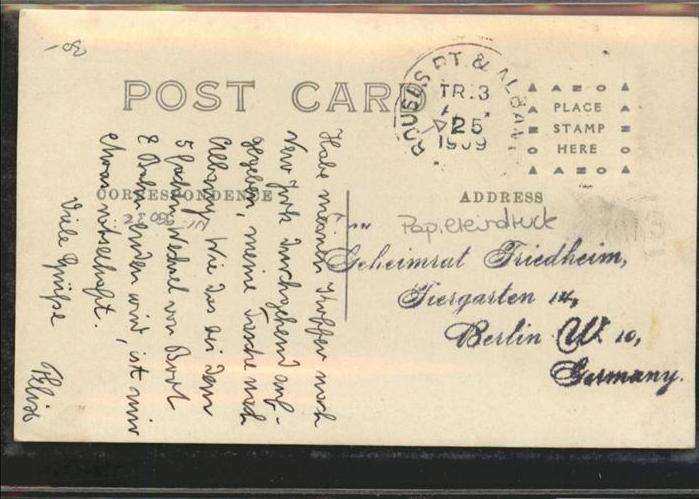 30-
POST CARD
ROUSES PT & ALBANY
TR.3
25
1909
PLACE
STAMP
HERE
AZO
AZO
CORRESPONDENCE
ADDRESS
Habe meinen Koffer nach
New York durchgehend auf-
gegeben, meine Tasche nach
Albany. Wie das bei dem
5 fachen Wechsel von Boot
& Bahn enden wird, ist mir
etwas rätselhaft.
Viele Grüße
Felix
Geheimrat Friedheim,
Tiergarten
Berlin W. 10,
Germany.